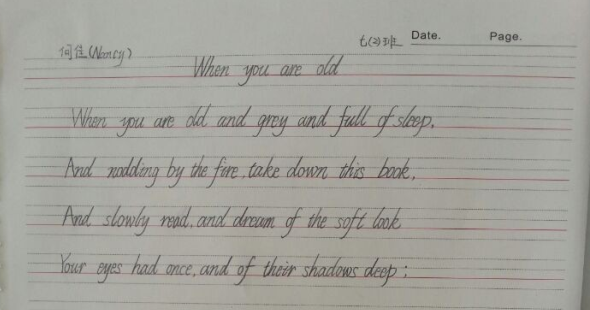 何佳(Nancy) 七(2)班 Date. Page.
When you are old
When you are old and grey and full of sleep,
And nodding by the fire, take down this book,
And slowly read, and dream of the soft look
Your eyes had once, and of their shadows deep;